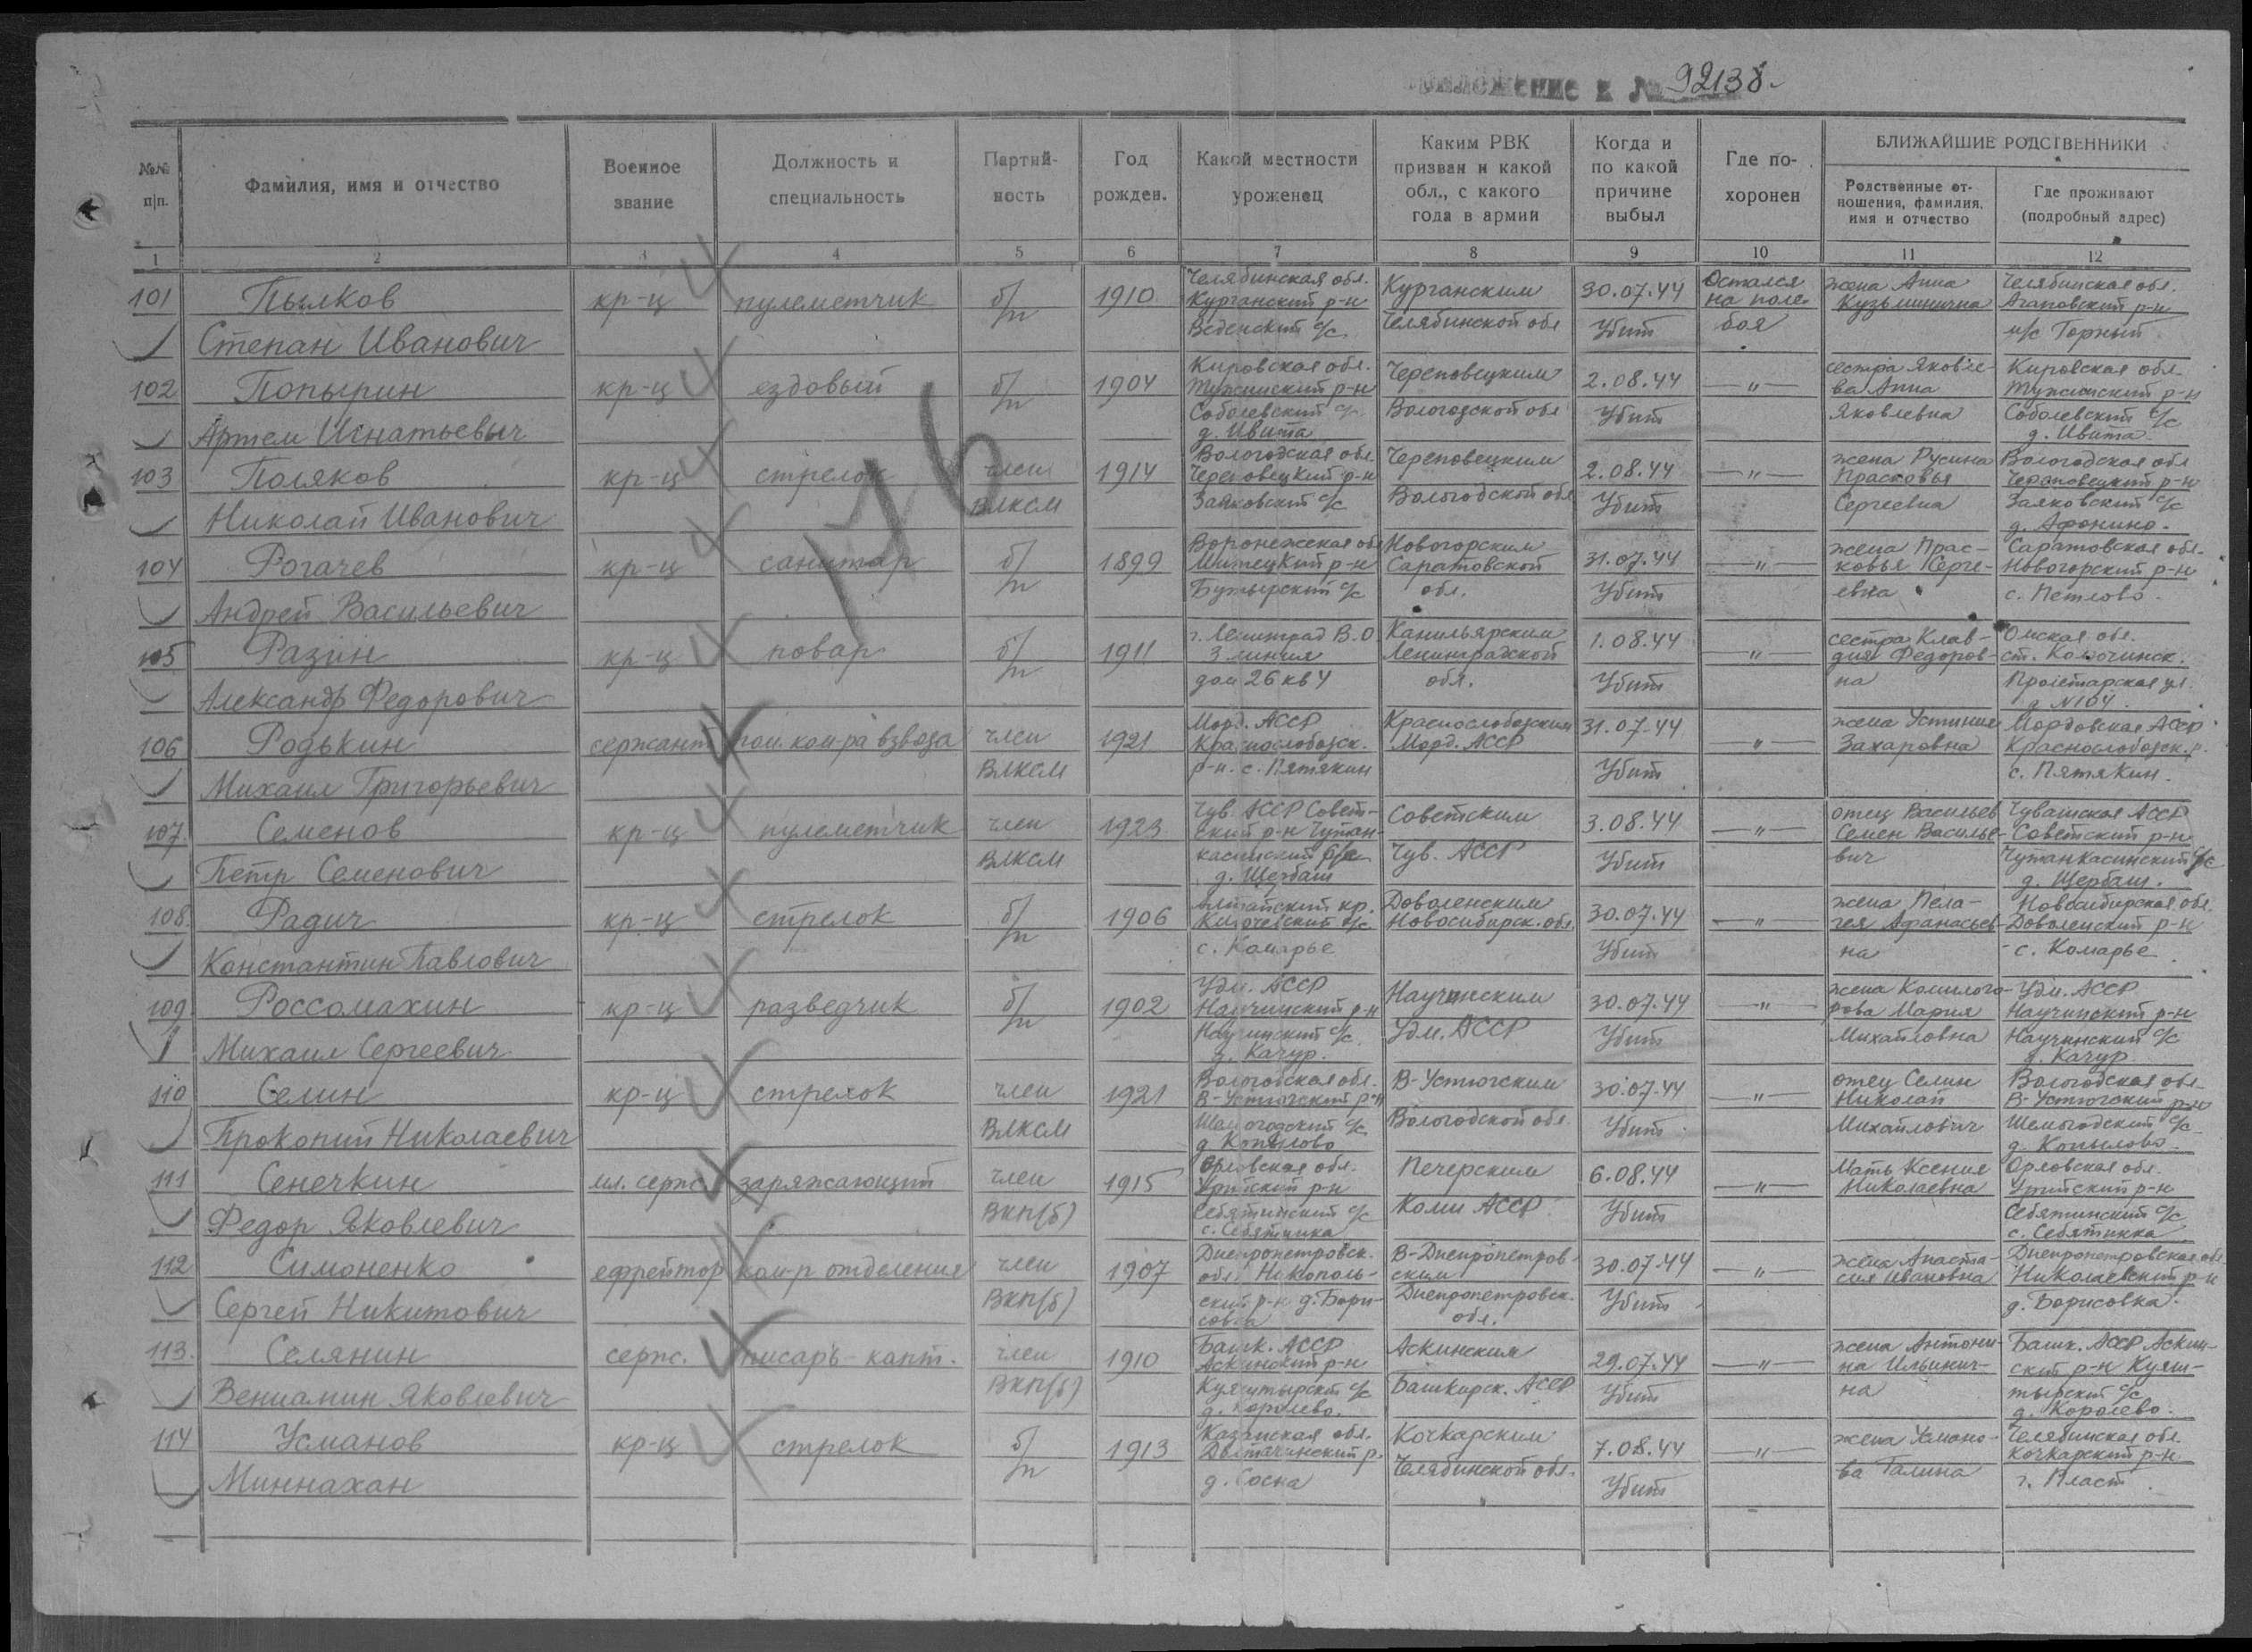 Приложение к № 92138
№№ п/п.
Фамилия, имя и отчество
Военное звание
Должность и специальность
Партий-ность
Год рожден.
Какой местности уроженец
Каким РВК призван и какой обл., с какого года в армии
Когда и по какой причине выбыл
Где по-хоронен
БЛИЖАЙШИЕ РОДСТВЕННИКИ
Родственные от-ношения, фамилия, имя и отчество
Где проживают (подробный адрес)
1 2 3 4 5 6 7 8 9 10 11 12
176
101 Пылков Степан Иванович кр-ц пулеметчик б/п 1910 Челябинская обл. Курганский р-н Веденский с/с Курганским Челябинской обл 30.07.44 Убит Остался на поле боя жена Анна Кузьминична Челябинская обл. Агаповский р-н м/с Горный
102 Попырин Артем Игнатьевич кр-ц ездовый б/п 1904 Кировская обл. Тужинский р-н Соболевский с/с д. Ивита Череповецким Вологодской обл 2.08.44 Убит —"— сестра Яковле-ва Анна Яковлевна Кировская обл. Тужинский р-н Соболевский с/с д. Ивита
103 Поляков Николай Иванович кр-ц стрелок член ВЛКСМ 1914 Вологодская обл Череповецкий р-н Заяковский с/с Череповецким Вологодской обл 2.08.44 Убит —"— жена Русина Прасковья Сергеевна Вологодская обл Череповецкий р-н Заяковский с/с д. Афонино.
104 Рогачев Андрей Васильевич кр-ц санитар б/п 1899 Воронежская обл р-н Бутырский с/с Новогорским Саратовской обл. 31.07.44 Убит —"— жена Прас-ковья Серге-евна Саратовская обл. Новогорский р-н с. Петлово.
105 Разин Александр Федорович кр-ц повар б/п 1911 г. Ленинград В.О 3 линия дом 26 кв 4 Ленинградской обл. 1.08.44 Убит —"— сестра Клав-дия Федоров-на Омская обл. ст. Пролетарская ул. д N104.
106 Родькин Михаил Григорьевич сержант пом. ком-ра взвода член ВЛКСМ 1921 Морд. АССР Краснослободск. р-н. с. Пятякин Краснослободским Морд. АССР 31.07.44 Убит —"— жена Устиния Захаровна Мордовская АССР Краснослободск. р. с. Пятякин.
107. Семенов Петр Семенович кр-ц пулеметчик член ВЛКСМ 1923 Чув. АССР Совет-ский р-н Чутан-касинский с/с д. Щербаш Советским Чув. АССР 3.08.44 Убит —"— отец Васильев Семен Василье-вич Чувашская АССР Советский р-н Чутанкасинский с/с д. Щербаш.
108. Радич Константин Павлович кр-ц стрелок б/п 1906 Алтайский кр. с/с с. Комарье Доволенским Новосибирск. обл. 30.07.44 Убит —"— жена Пела-гея Афанасьев-на Новосибирская обл. Доволенский р-н с. Комарье.
109 Россомахин Михаил Сергеевич кр-ц разведчик б/п 1902 Удм. АССР Научинский р-н Научинский с/с д. Качур. Научинским Удм. АССР 30.07.44 Убит —"— жена Мария Михайловна Удм. АССР Научинский р-н Научинский с/с д. Качур
110 Селин Прокопий Николаевич кр-ц стрелок член ВЛКСМ 1921 Вологодская обл. В-Устюгский р-н Шемогодский с/с д Копылово В-Устюгским Вологодской обл. 30.07.44 Убит —"— отец Селин Николай Михайлович Вологодская обл. В-Устюгский р-н Шемогодский с/с д. Копылово.
111 Сенечкин Федор Яковлевич мл. серж. заряжающий член ВКП(б) 1915 Орловская обл. р-н с/с Печерским Коми АССР 6.08.44 Убит —"— Мать Ксения Николаевна Орловская обл. р-н с/с
112 Симоненко Сергей Никитович ефрейтор ком-р отделения член ВКП(б) 1907 Днепропетровск. обл Никополь-ский р-н д. Бори-совка В-Днепропетров-ским Днепропетровск. обл. 30.07.44 Убит —"— жена Анаста-сия Ивановна Днепропетровская обл Николаевский р-н д. Борисовка.
113. Селянин Вениамин Яковлевич серж. писарь-капт. член ВКП(б) 1910 Башк. АССР Аскинский р-н Куяштырский с/с д. Королево. Аскинским Башкирск. АССР 29.07.44 Убит —"— жена Антони-на Ильинич-на Башк. АССР Аскин-ский р-н Куяш-тырский с/с д. Королево.
114 Усманов Миннахан кр-ц стрелок б/п 1913 обл. д. Сосна Кочкарским Челябинской обл. 7.08.44 Убит —"— жена Усмано-ва Галина Челябинская обл. Кочкарский р-н г. Пласт.